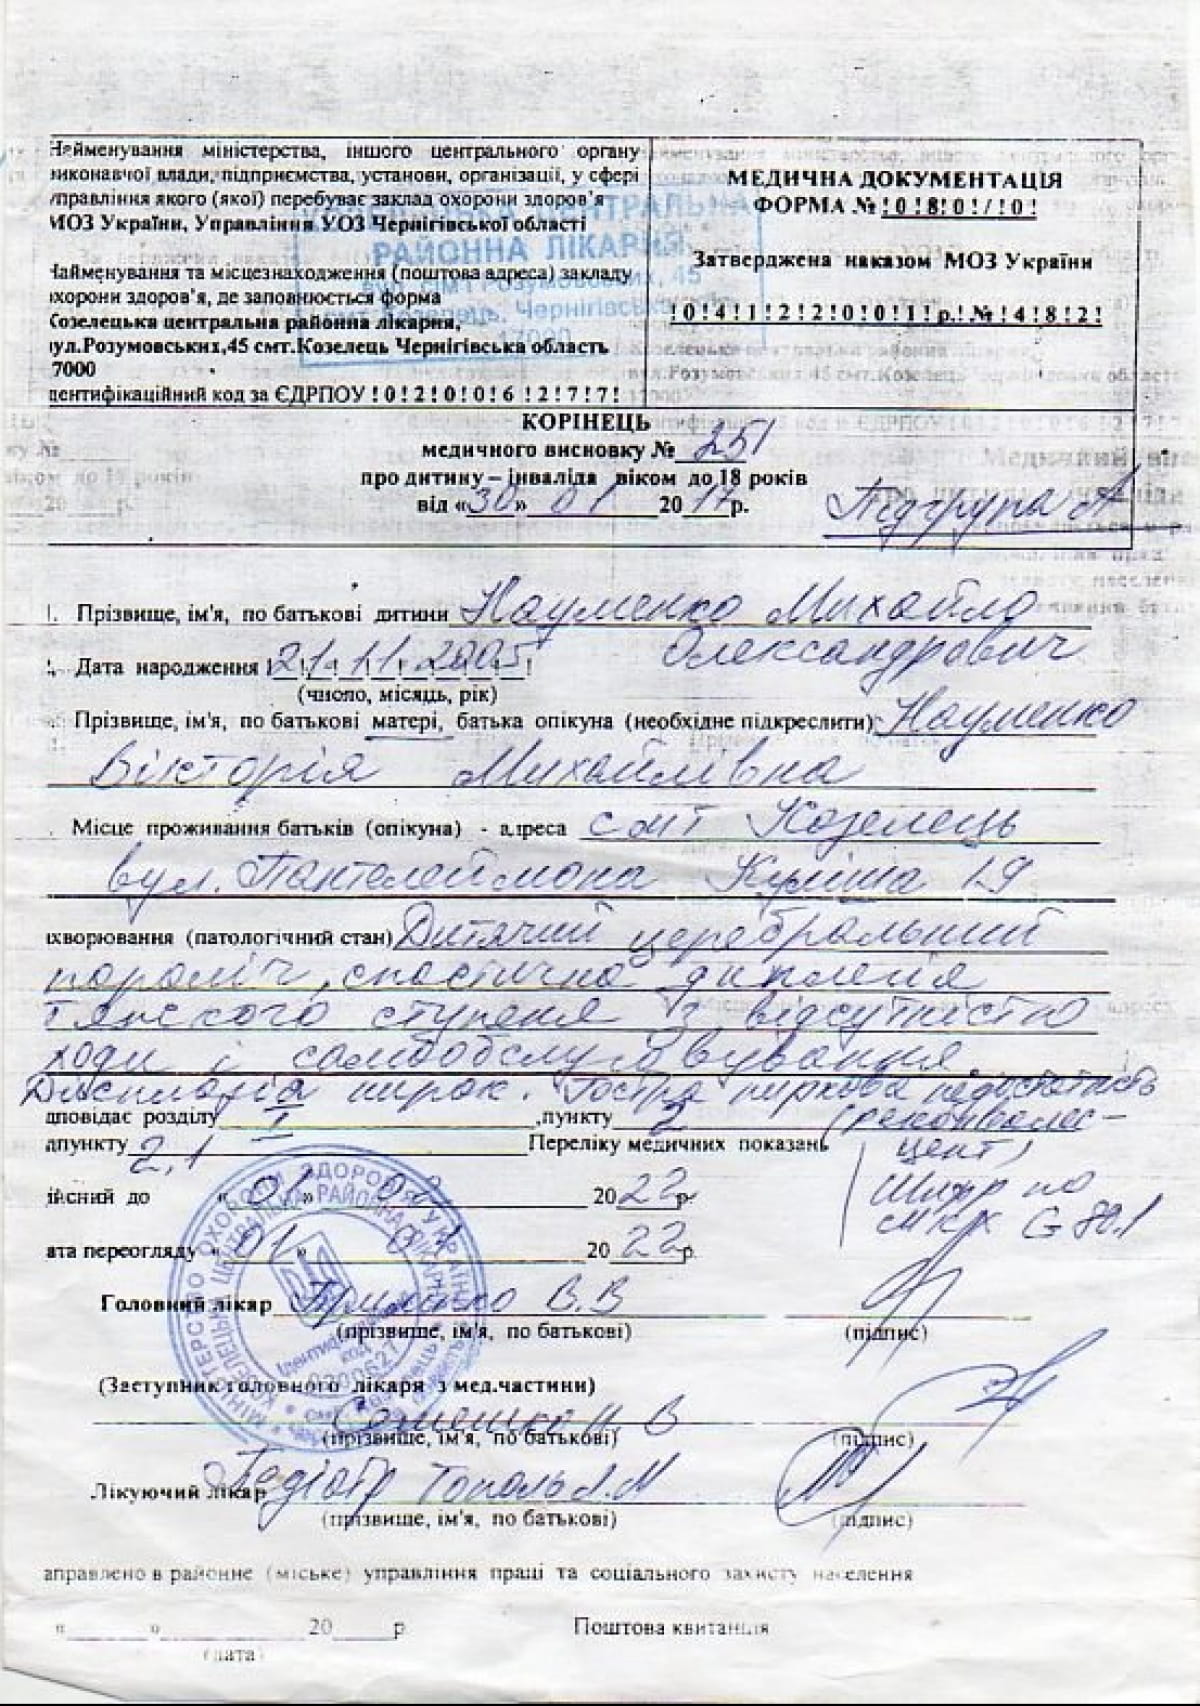 Найменування міністерства, іншого центрального органу
виконавчої влади, підприємства, установи, організації, у сфері
управління якого (якої) перебуває заклад охорони здоров'я
МОЗ України, Управління УОЗ Чернігівської області
Найменування та місцезнаходження (поштова адреса) закладу
охорони здоров'я, де заповнюється форма
Козелецька центральна районна лікарня,
вул.Розумовських,45 смт.Козелець Чернігівська область
17000
ідентифікаційний код за ЄДРПОУ !0!2!0!0!6!2!7!7!
ЦЕНТРАЛЬНА
РАЙОННА ЛІКАРНЯ
вул. Сім'ї Розумовських, 45
смт. Козелець, Чернігівська
17000
МЕДИЧНА ДОКУМЕНТАЦІЯ
ФОРМА № !0!8!0!/!0!
Затверджена наказом МОЗ України
!0!4!1!2!2!0!0!1!р.!№!4!8!2!
КОРІНЕЦЬ
медичного висновку № 251
про дитину – інваліда віком до 18 років
від «30» 01 2017р.
Підгрупа А
1. Прізвище, ім'я, по батькові дитини Науменко Михайло
Олександрович
2. Дата народження 21.11.2005
(число, місяць, рік)
Прізвище, ім'я, по батькові матері, батька опікуна (необхідне підкреслити) Науменко
Вікторія Михайлівна
Місце проживання батьків (опікуна) - адреса смт Козелець
вул. Пантелеймона Куліша 19
ахворювання (патологічний стан) Дитячий церебральний
параліч, спастична диплегія
тяжкого ступеня з відсутністю
ходи і самообслуговування
Дисплазія нирок. Гостра ниркова недостатність
дповідає розділу I ,пункту 2 (реконвалес-
дпункту 2.1 Переліку медичних показань цент)
ійсний до «01» 02 2022р.
Шифр по
МКХ G 80.1
ата переогляду «01» 01 2022р.
Головний лікар В.В
(прізвище, ім'я, по батькові) (підпис)
(Заступник головного лікаря з мед.частини)
В
(прізвище, ім'я, по батькові) (підпис)
Лікуючий лікар Педіатр Тополь Л.М
(прізвище, ім'я, по батькові) (підпис)
аправлено в районне (міське) управління праці та соціального захисту населення
"____"______20____р. Поштова квитанція
(дата)